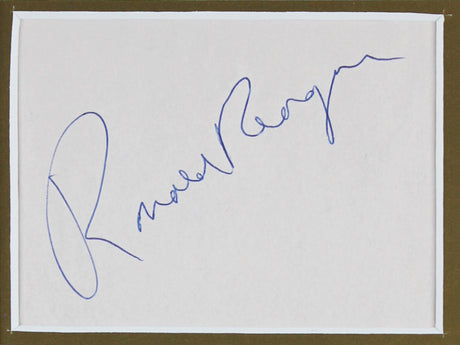 Ronald Reagan